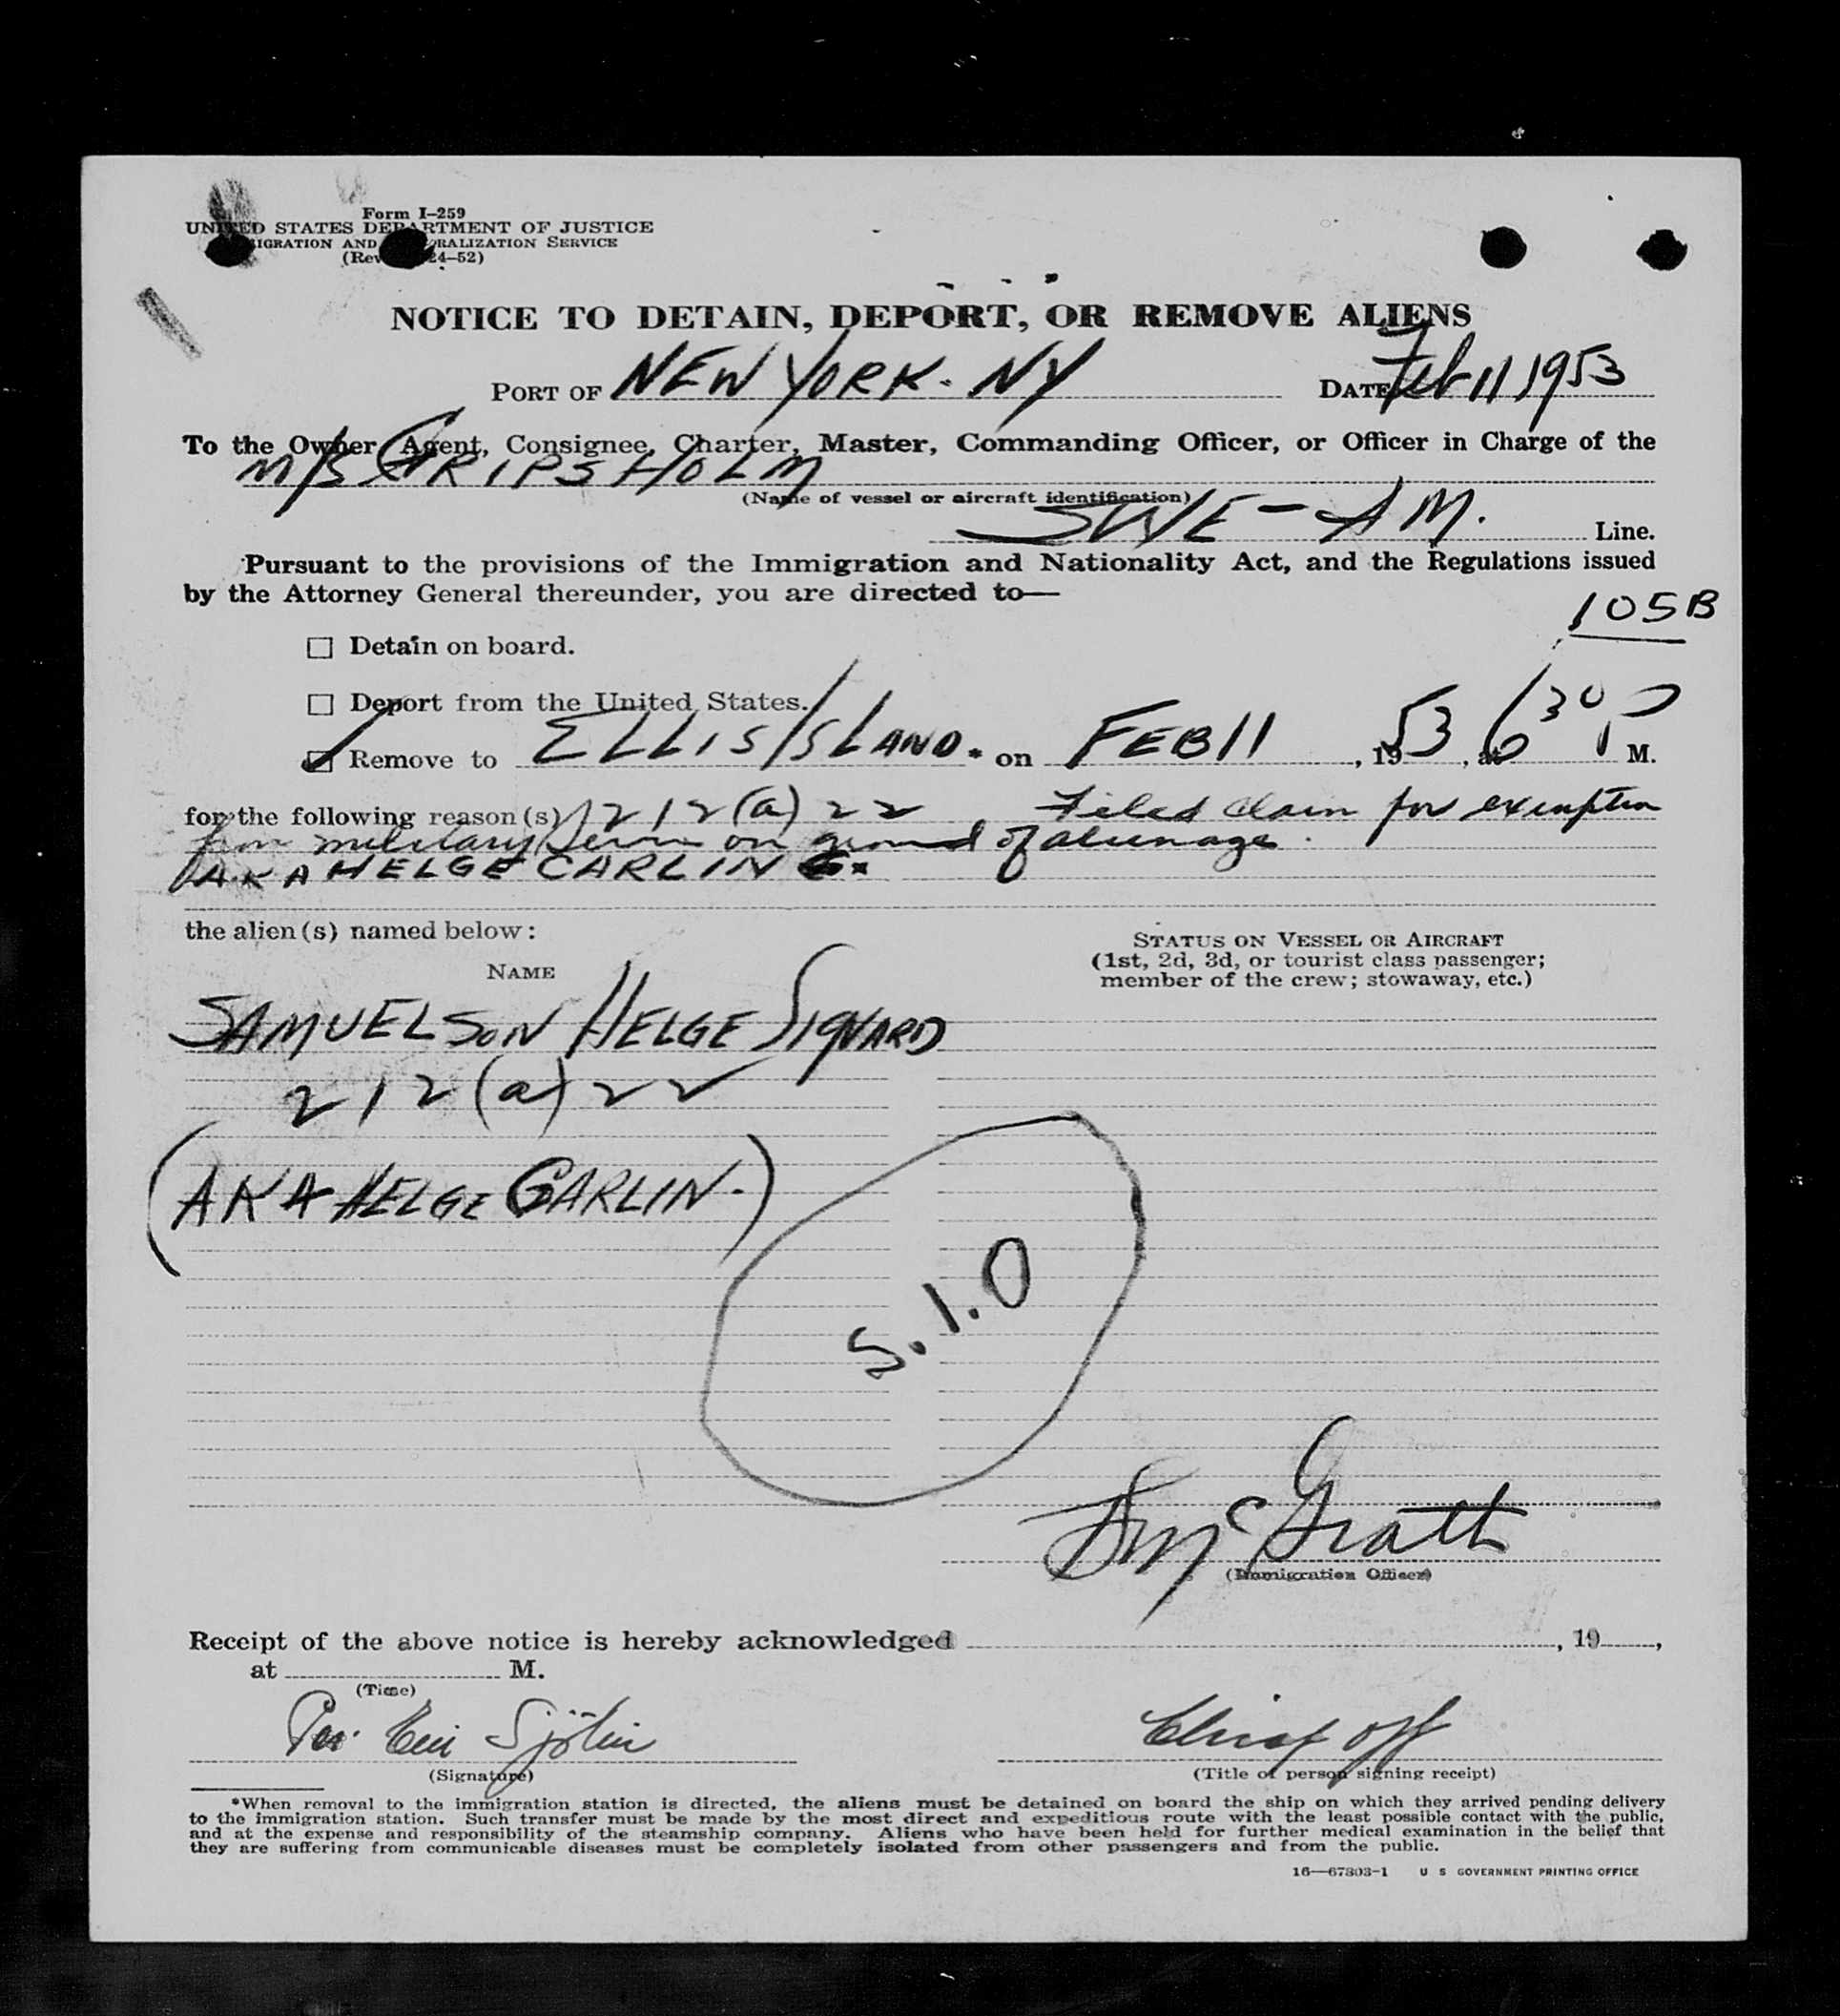 Form I–259
UNITED STATES DEPARTMENT OF JUSTICE
IGRATION AND RALIZATION SERVICE
(Rev 24–52)
NOTICE TO DETAIN, DEPORT, OR REMOVE ALIENS
PORT OF NEW YORK. NY DATE Feb 11 1953
To the Owner, Agent, Consignee, Charter, Master, Commanding Officer, or Officer in Charge of the
M/S GRIPSHOLM
(Name of vessel or aircraft identification)
SWE-AM. Line.
Pursuant to the provisions of the Immigration and Nationality Act, and the Regulations issued
by the Attorney General thereunder, you are directed to—
105B
☐ Detain on board.
☐ Deport from the United States.
☑ Remove to ELLIS ISLAND.* on FEB 11, 1953, at 630 P M.
for the following reason(s) 212(a)22 Filed claim for exemption
from military service on ground of alienage.
AKA HELGE CARLIN
the alien(s) named below:
STATUS ON VESSEL OR AIRCRAFT
(1st, 2d, 3d, or tourist class passenger;
member of the crew; stowaway, etc.)
NAME
SAMUELSON HELGE SIGVARD
212(a)22
(AKA HELGE GARLIN.)
S.I.O
McGrath
(Immigration Officer)
Receipt of the above notice is hereby acknowledged , 19 ,
at M.
(Time)
Per Sjölin
Chief off
(Signature)
(Title of person signing receipt)
*When removal to the immigration station is directed, the aliens must be detained on board the ship on which they arrived pending delivery
to the immigration station. Such transfer must be made by the most direct and expeditious route with the least possible contact with the public,
and at the expense and responsibility of the steamship company. Aliens who have been held for further medical examination in the belief that
they are suffering from communicable diseases must be completely isolated from other passengers and from the public.
16—67303-1 U S GOVERNMENT PRINTING OFFICE